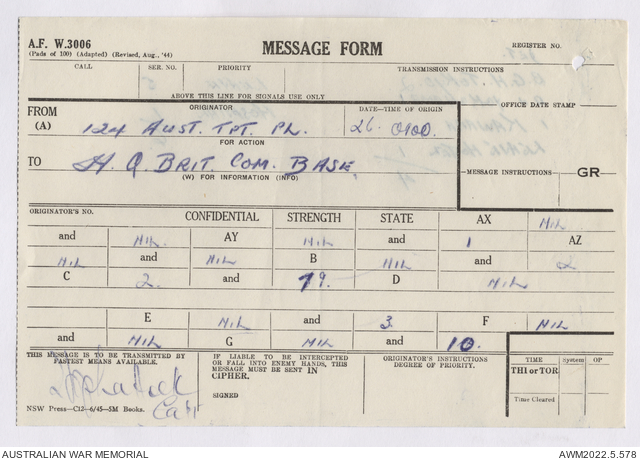 A.F. W.3006
(Pads of 100) (Adapted) (Revised, Aug., '44)
MESSAGE FORM
REGISTER NO.
CALL SER. NO. PRIORITY TRANSMISSION INSTRUCTIONS
ABOVE THIS LINE FOR SIGNALS USE ONLY
OFFICE DATE STAMP
ORIGINATOR DATE-TIME OF ORIGIN
FROM
(A) 124 AUST. TPT. PL. 26. 0100.
FOR ACTION
TO H.Q. BRIT. COM. BASE.
(W) FOR INFORMATION (INFO)
MESSAGE INSTRUCTIONS GR
ORIGINATOR'S NO. CONFIDENTIAL STRENGTH STATE AX NIL
and NIL AY NIL and 1 AZ
NIL and NIL B NIL and 2
C 2. and 79. D NIL
E NIL and 3. F NIL
and NIL G NIL and 10.
THIS MESSAGE IS TO BE TRANSMITTED BY FASTEST MEANS AVAILABLE.
IF LIABLE TO BE INTERCEPTED OR FALL INTO ENEMY HANDS, THIS MESSAGE MUST BE SENT IN CIPHER.
ORIGINATOR'S INSTRUCTIONS DEGREE OF PRIORITY.
TIME System OP
THI or TOR
Time Cleared
SIGNED
Capt
NSW Press—C12—6/45—5M Books.
AUSTRALIAN WAR MEMORIAL
AWM2022.5.578